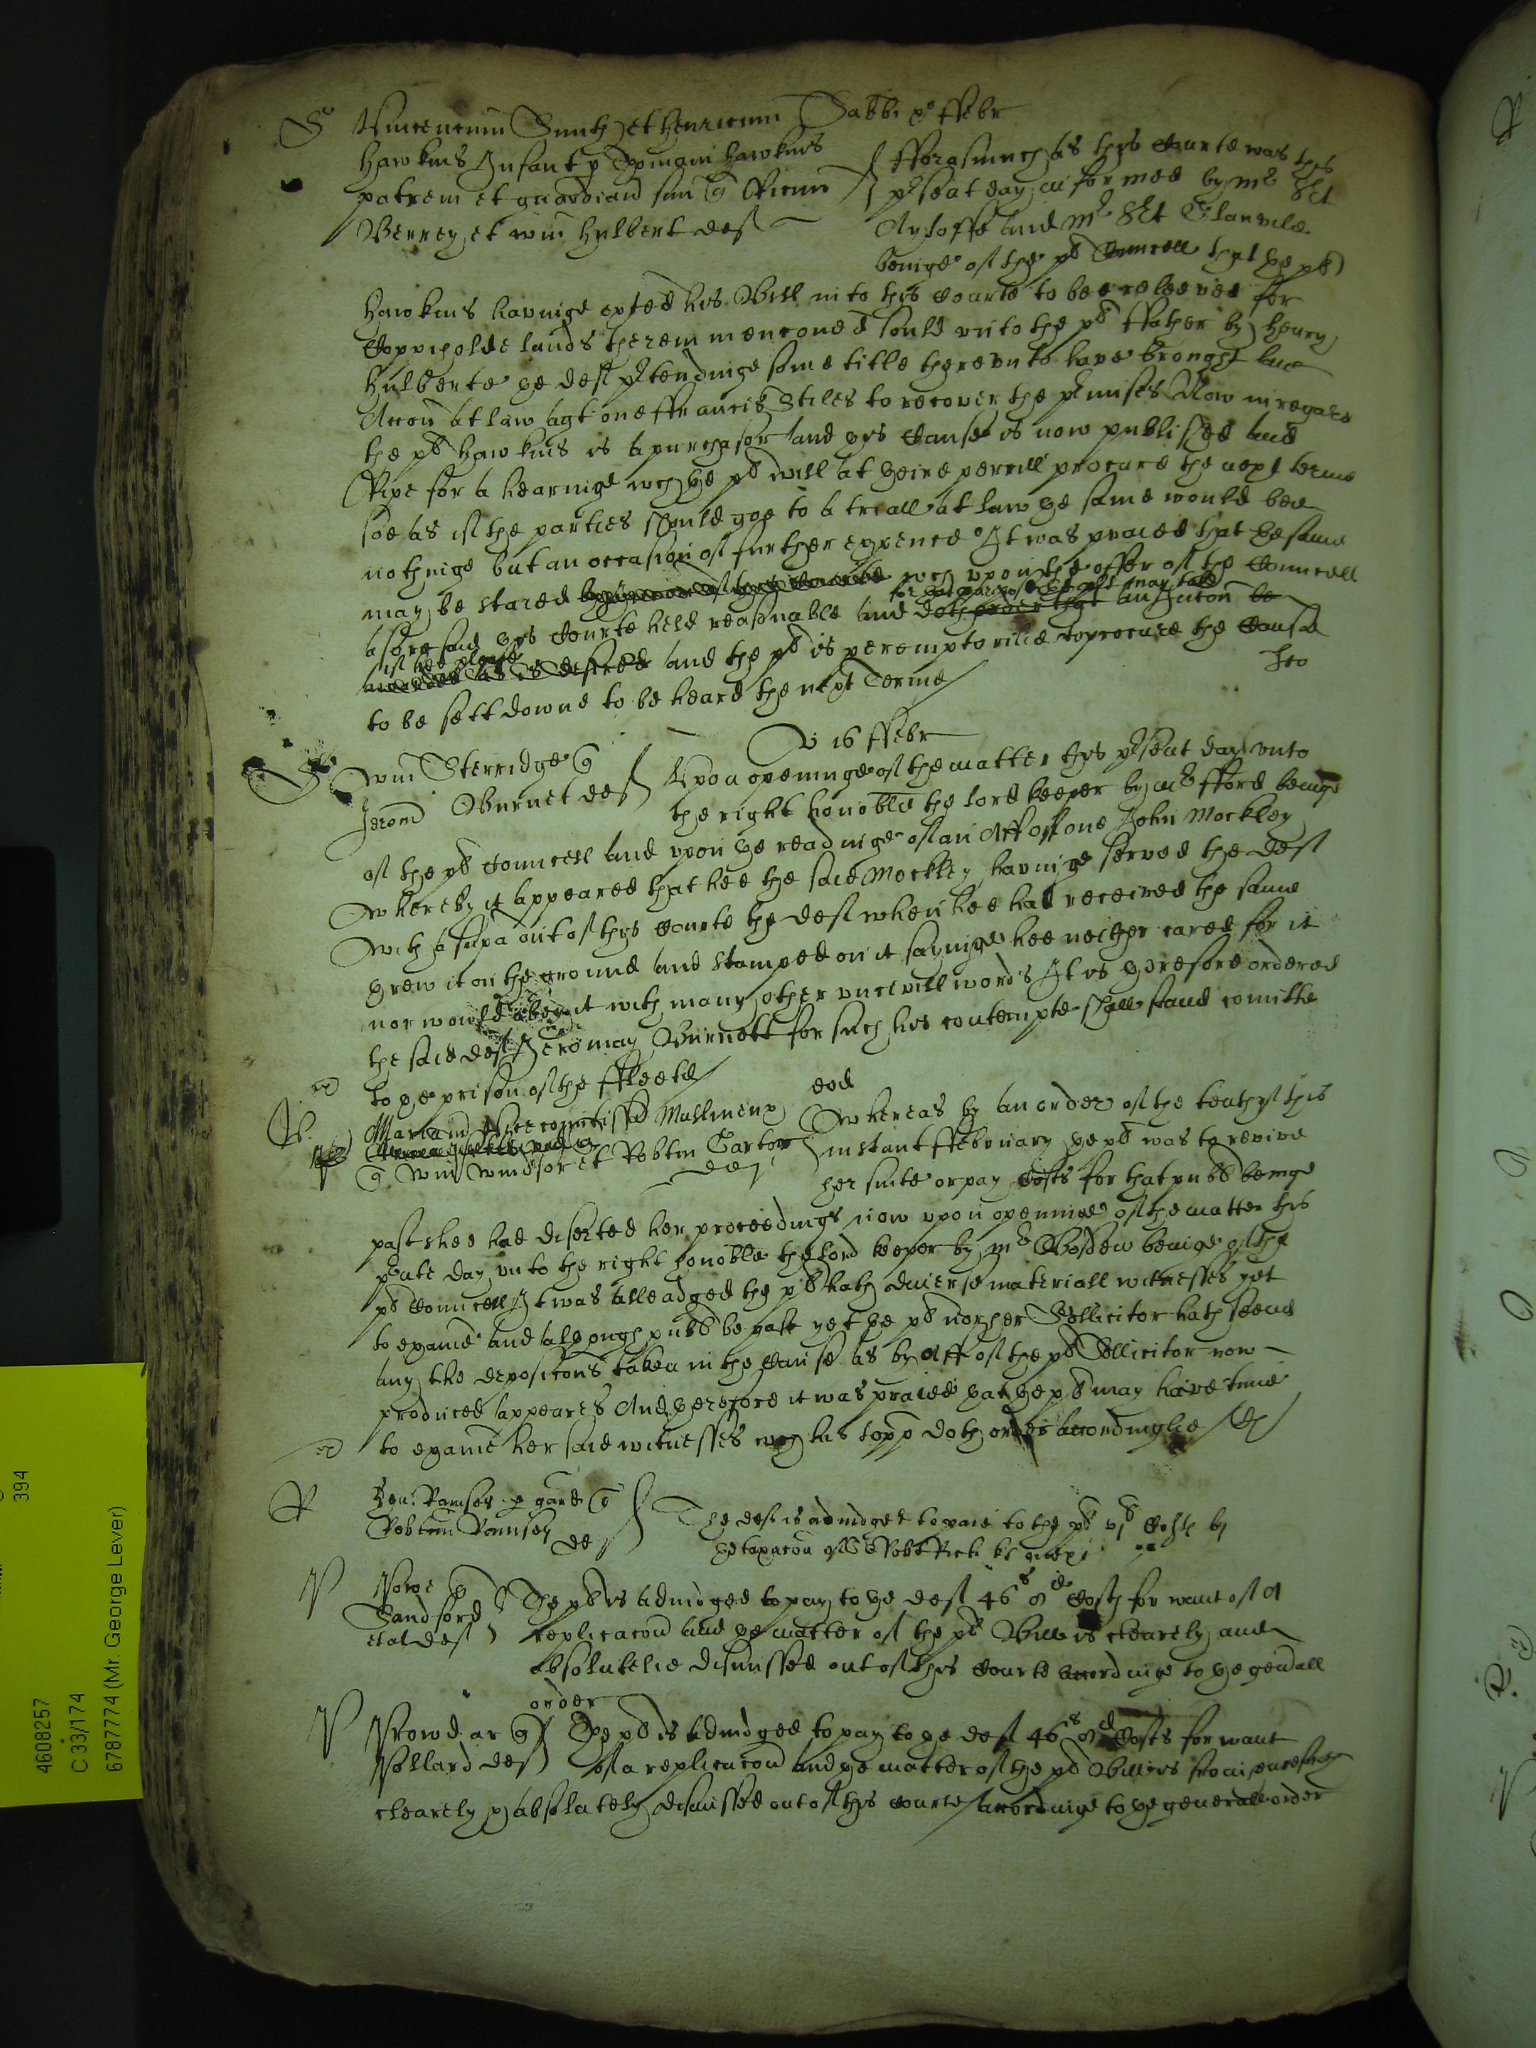 S Vincentium Smith et Henricum Sabbi xo ffebr
Hawkins Infant p Thomam Hawkins
patrem et guardian suu q
Berrey et Wm Hulbert def
fforasmuch as this Courte was this
psent day informed by Mr Sct
Ayloffe and Mr Sct Glanvile
beinge of the pl Councell that the pl
Hawkins havinge exhted his Bill into this Courte to bee releeved for
Coppieholde lands therein menconed sould unto the pl ffather by Henry
Hulberte the deft ptendinge some title thereunto have brought an
Accon at law agt one ffrancis Stiles to recover the pmisses Now in regard
the pl Hawkins is a purchasor and this Cause is now published and
Ripe for a hearinge wch the pl will at theire perrill procure the next terme
soe as if the parties should goe to a triall at law the same would bee
nothinge but an occasion of further expence It was praied that the same
may be staied wch upon the offer of the Councell
for that purpose the pl may take
aforesaid this Courte held reasonable and doth order that an Iniuncon be
if hee please
awarded as is desired and the pl is peremptorilie to procure the Cause
to be sett downe to be heard the next Terme
Jeo
V 16 ffebr
S Wm Sterridge q
Jerom Burnet def
Upon openinge of the matter this psent day unto
the right honoble the lord keeper by Mr fford beinge
of the pl Councell and upon the readinge of an Aff of one John Mockley
Whereby it appeared that hee the said Mockley havinge served the Deft
with a supa out of this Courte the deft when hee had received the same
threw it on the ground and stamped on it sayinge hee neither cared for it
nor would obey it with many other uncivill words It is therefore ordered
the said deft Jeromay Burnett for such his contempte shall stand comitte
to the prison of the ffleete
eod
Mariam vicecomitissa Mullineux
q Wm Windsor et Robtm Carton
def
Whereas by an order of the teath of this
instant ffebruary the pl was to revive
her suite or pay Costs for that publ beinge
past shee had deserted her proceedings now upon openinge of the matter this
psente day unto the right honoble the lord keeper by Mr beinge of the
pl Councell It was alleadged the pl hath diverse materiall witnesses yet
to examie and although publ be past yet the pl nor her Sollicitor hath seene
any the deposicons taken in the Cause as by Aff of the pl Sollicitor now
produced appeares And therefore it was praied that the pl may have time
to examie her said witnesses wch his lopp doth order accordinglie
R Hen: Ramsey p gard q
Robtum Ramsey
def
The deft is adiudged to paie to the pl Costs by
the taxacon of Sr Robt Rich
N Noroe q
Sandford
et al def
The pl is adiudged to pay to the deft 46s 8d Costs for want of A
replicacon and the matter of the pl Bill is clearely and
absolutelie dismissed out of this Courte accordinge to the genall
order
N ar q
Pollard def
The pl is adiudged to pay to the deft 46s 8d Costs for want
of a replicacon and the matter of the pl Bill is from henceforth
clearely & absolutely dismissed out of this Courte accordinge to the generall order
394
4608257
C 33/174
6787774 (Mr. George Lever)